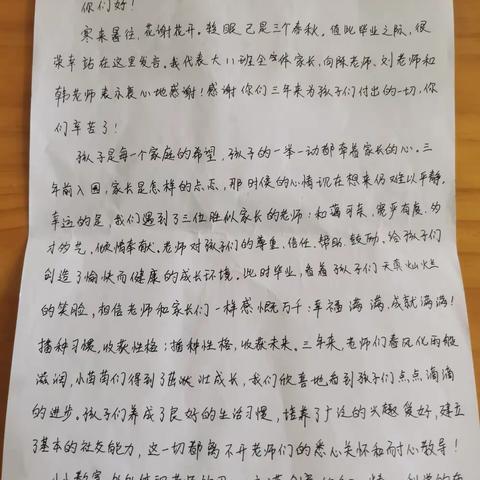 你们好！
寒来暑往，花谢花开。转眼已是三个春秋，值此毕业之际，很
荣幸站在这里发言。我代表大11班全体家长，向陈老师、刘老师和
韩老师表示衷心地感谢！感谢你们三年来为孩子们付出的一切，你
们辛苦了！
孩子是每一个家庭的希望，孩子的一举一动都牵着家长的心。三
年前入园，家长是怎样的忐忑，那时候的心情现在想来仍难以平静。
幸运的是，我们遇到了三位胜似家长的老师：和蔼可亲，宽严有度，多
才多艺，倾情奉献。老师对孩子们的尊重、信任、帮助、鼓励，给孩子们
创造了愉快而健康的成长环境。此时毕业，看着孩子们天真灿烂
的笑脸，相信老师和家长们一样感慨万千：幸福满满，成就满满！
播种习惯，收获性格；播种性格，收获未来。三年来，老师们春风化雨般
滋润，小苗苗们得到了茁壮成长，我们欣喜地看到孩子们点点滴滴
的进步。孩子们养成了良好的生活习惯，培养了广泛的兴趣爱好，建立
了基本的社交能力，这一切都离不开老师们的悉心关怀和耐心教导！